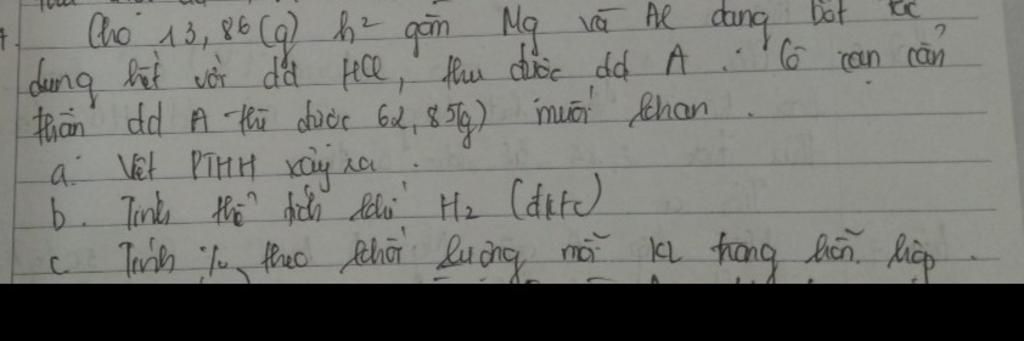 Cho 13,86 (g) h² gồm Mg và Al dạng bột tác
dụng hết với dd HCl, thu được dd A. Cô cạn cẩn
thận dd A thì được 62,85(g) muối khan.
a. Viết PTHH xảy ra.
b. Tính thể tích khí H₂ (đktc)
c. Tính % theo khối lượng mỗi KL trong hỗn hợp.